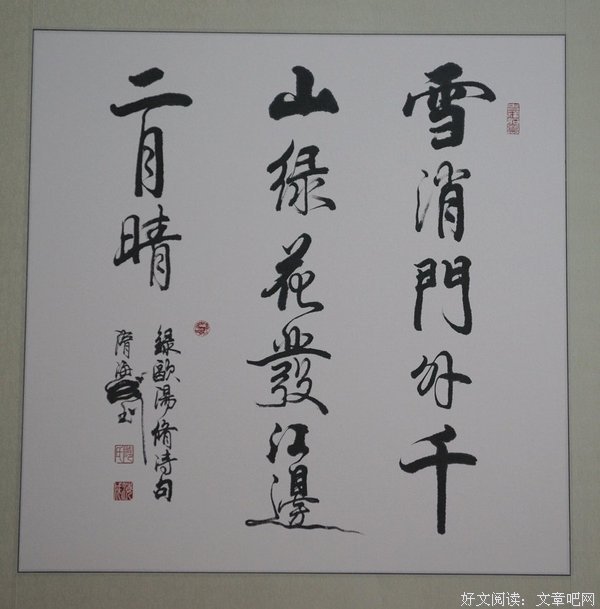 雪消門外千
山緑花發江邊
二月晴
錄歐陽脩詩句
隋海
好文阅读：文章吧网